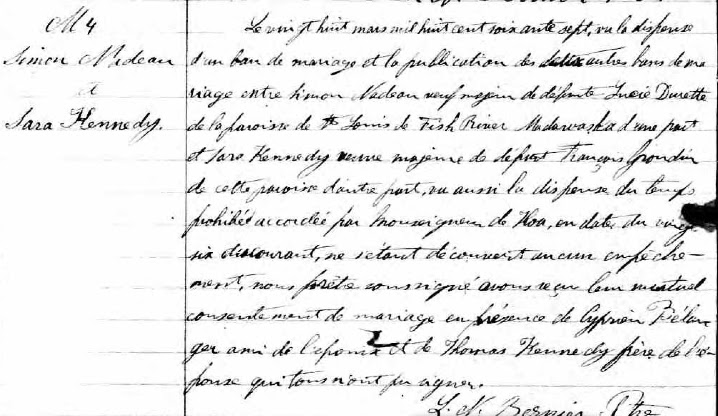 M 4
Simon Nadeau
et
Sara Kennedy.
Le vingt huit mars mil huit cent soixante sept, vu la dispense
d'un ban de mariage et la publication des deux autres bans de ma
riage entre Simon Nadeau veuf majeur de défunte Lucie Durette
de la paroisse de St Louis de Fish River Madawaska d'une part
et Sara Kennedy veuve majeure de défunt François Grondin
de cette paroisse d'autre part, vu aussi la dispense du temps
prohibé accordée par Monseigneur de Thoa, en date du vingt
six du courant, ne s'étant découvert aucun empêche-
ment, nous prêtre soussigné avons reçu leur mutuel
consentement de mariage en présence de Cyprien Bélan
ger ami de l'époux et de Thomas Kennedy frère de l'é
pouse qui tous n'ont pu signer.
L. N. Bernier Ptre